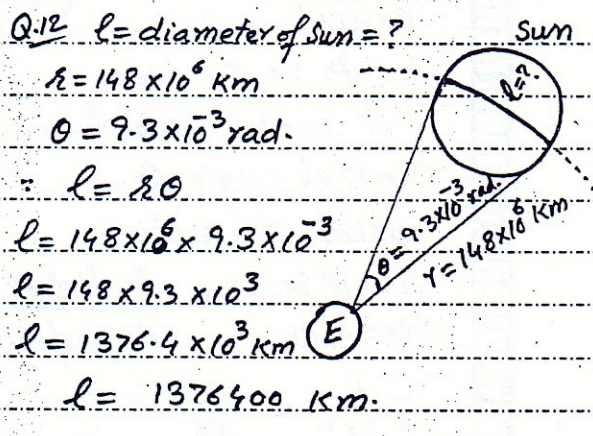 Q.12 l = diameter of Sun = ?
r = 148 × 10⁶ Km
θ = 9.3 × 10⁻³ rad.
∵ l = rθ
l = 148 × 10⁶ × 9.3 × 10⁻³
l = 148 × 9.3 × 10³
l = 1376.4 × 10³ Km
l = 1376400 Km.
Sun
l = ?
θ = 9.3 × 10⁻³ rad.
r = 148 × 10⁶ Km
E